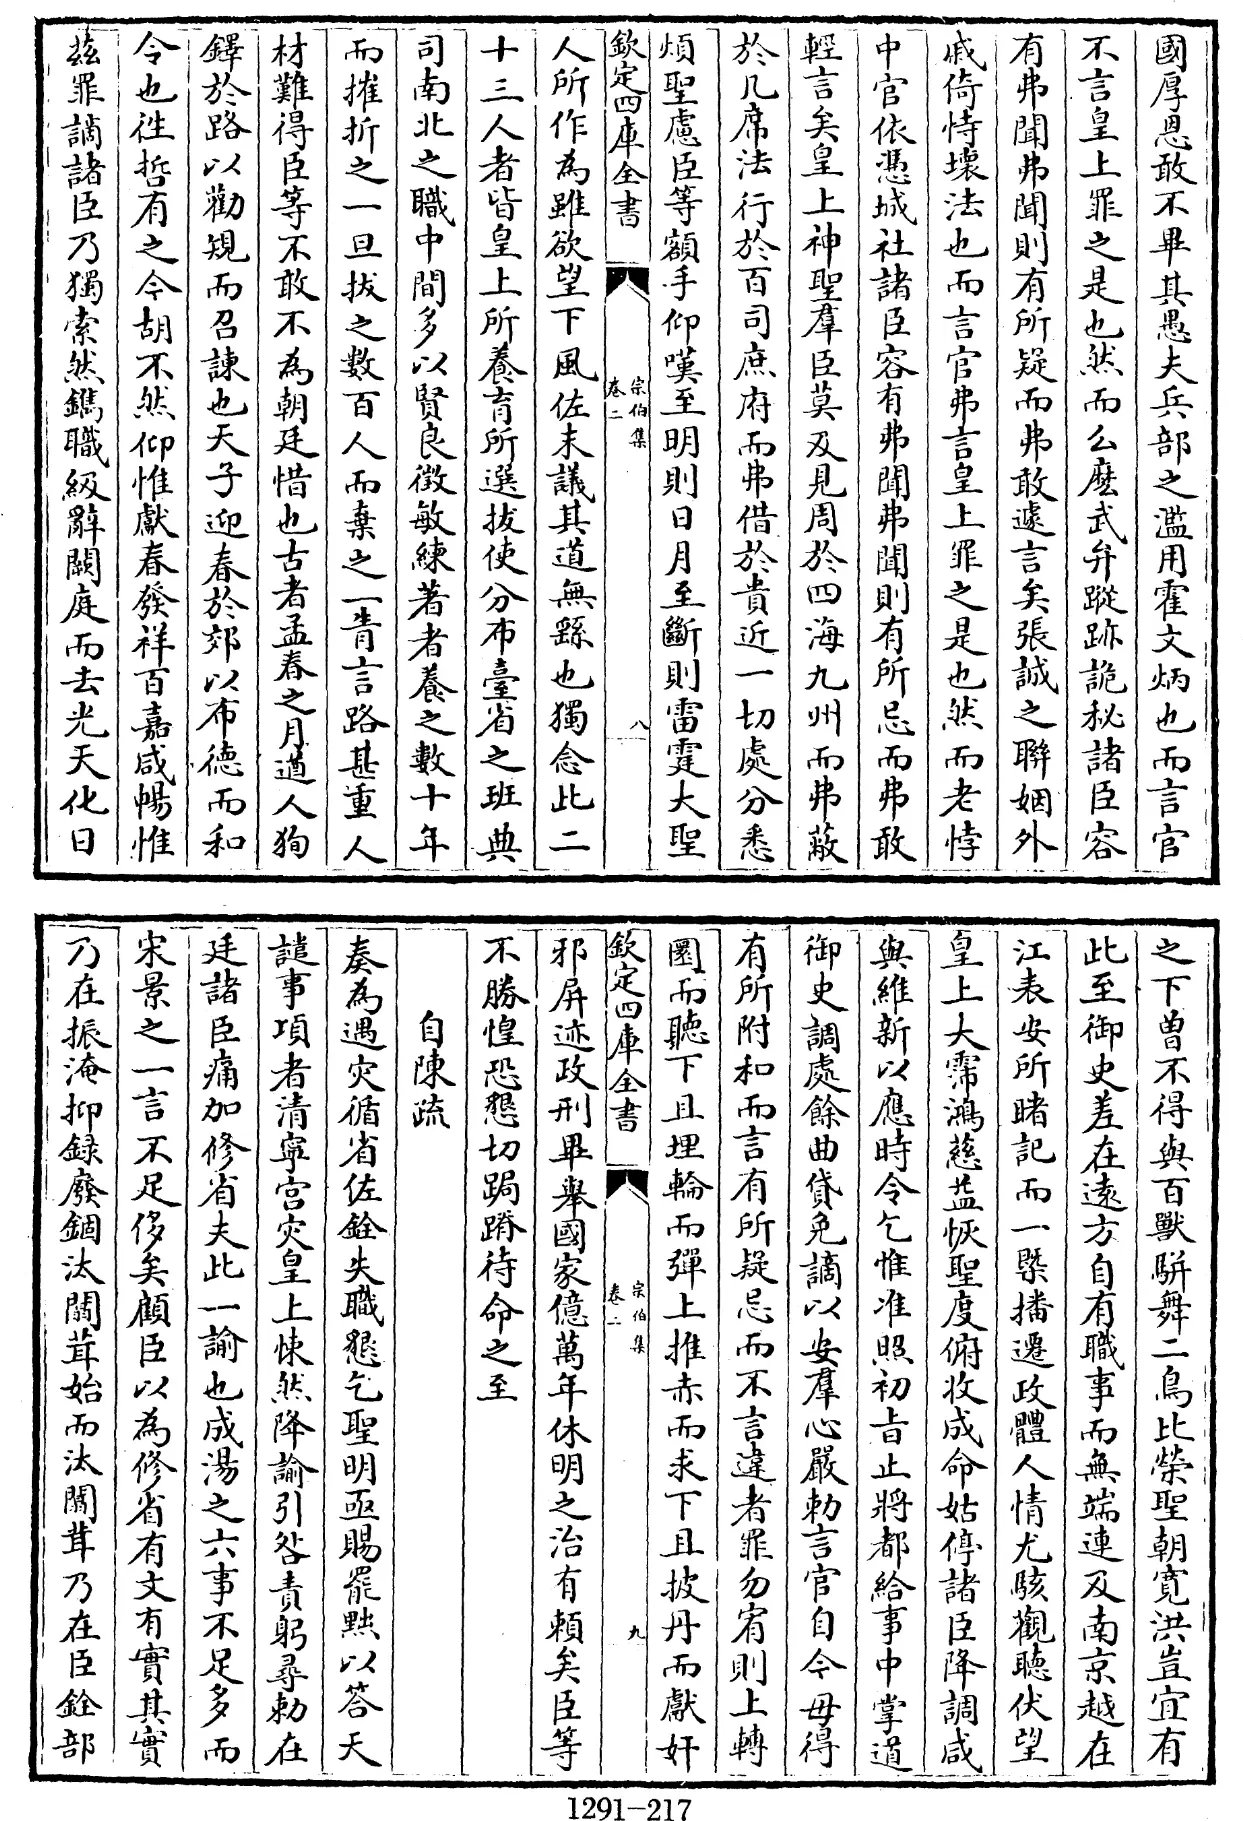 國厚恩敢不畢其愚夫兵部之濫用霍文炳也而言官
不言皇上罪之是也然而么麽武弁蹤跡詭秘諸臣容
有弗聞弗聞則有所疑而弗敢遽言矣張誠之聨姻外
戚倚恃壊法也而言官弗言皇上罪之是也然而老悖
中官依憑城社諸臣容有弗聞弗聞則有所忌而弗敢
輕言矣皇上神聖羣臣莫及見周於四海九州而弗蔽
於几席法行於百司庶府而弗借於貴近一切處分悉
煩聖慮臣等額手仰嘆至明則日月至斷則雷霆大聖
欽定四庫全書
宗伯集
卷二
八
人所作為雖欲望下風佐末議其道無繇也獨念此二
十三人者皆皇上所養育所選拔使分布臺省之班典
司南北之職中間多以賢良徵敏練著者養之數十年
而摧折之一旦拔之數百人而棄之一眚言路甚重人
材難得臣等不敢不為朝廷惜也古者孟春之月遒人狥
鐸於路以勸規而召諫也天子迎春於郊以布德而和
令也徃哲有之今胡不然仰惟獻春發祥百嘉咸暢惟
兹罪謫諸臣乃獨索然鐫職級辭闕庭而去光天化日
之下曽不得與百獸駢舞二鳥比榮聖朝寛洪豈宜有
此至御史差在逺方自有職事而無端連及南京越在
江表安所睹記而一槩播遷政體人情尤駭觀聽伏望
皇上大霈鴻慈益恢聖度俯收成命姑停諸臣降調咸
與維新以應時令乞惟准照初㫖止將都給事中掌道
御史調處餘曲貸免謫以安羣心嚴勅言官自今毋得
有所附和而言有所疑忌而不言違者罪勿宥則上轉
圜而聽下且埋輪而彈上推赤而求下且披丹而獻奸
欽定四庫全書
宗伯集
卷二
九
邪屏迹政刑畢舉國家億萬年休明之治有頼矣臣等
不勝惶恐懇切跼蹐待命之至
自陳疏
奏為遇灾循省佐銓失職懇乞聖明亟賜罷黜以答天
譴事項者清寧宫灾皇上悚然降諭引咎責躬尋勅在
廷諸臣痛加修省夫此一諭也成湯之六事不足多而
宋景之一言不足侈矣顧臣以為修省有文有實其實
乃在振淹抑録廢錮汰闒茸始而汰闒茸乃在臣銓部
1291-217